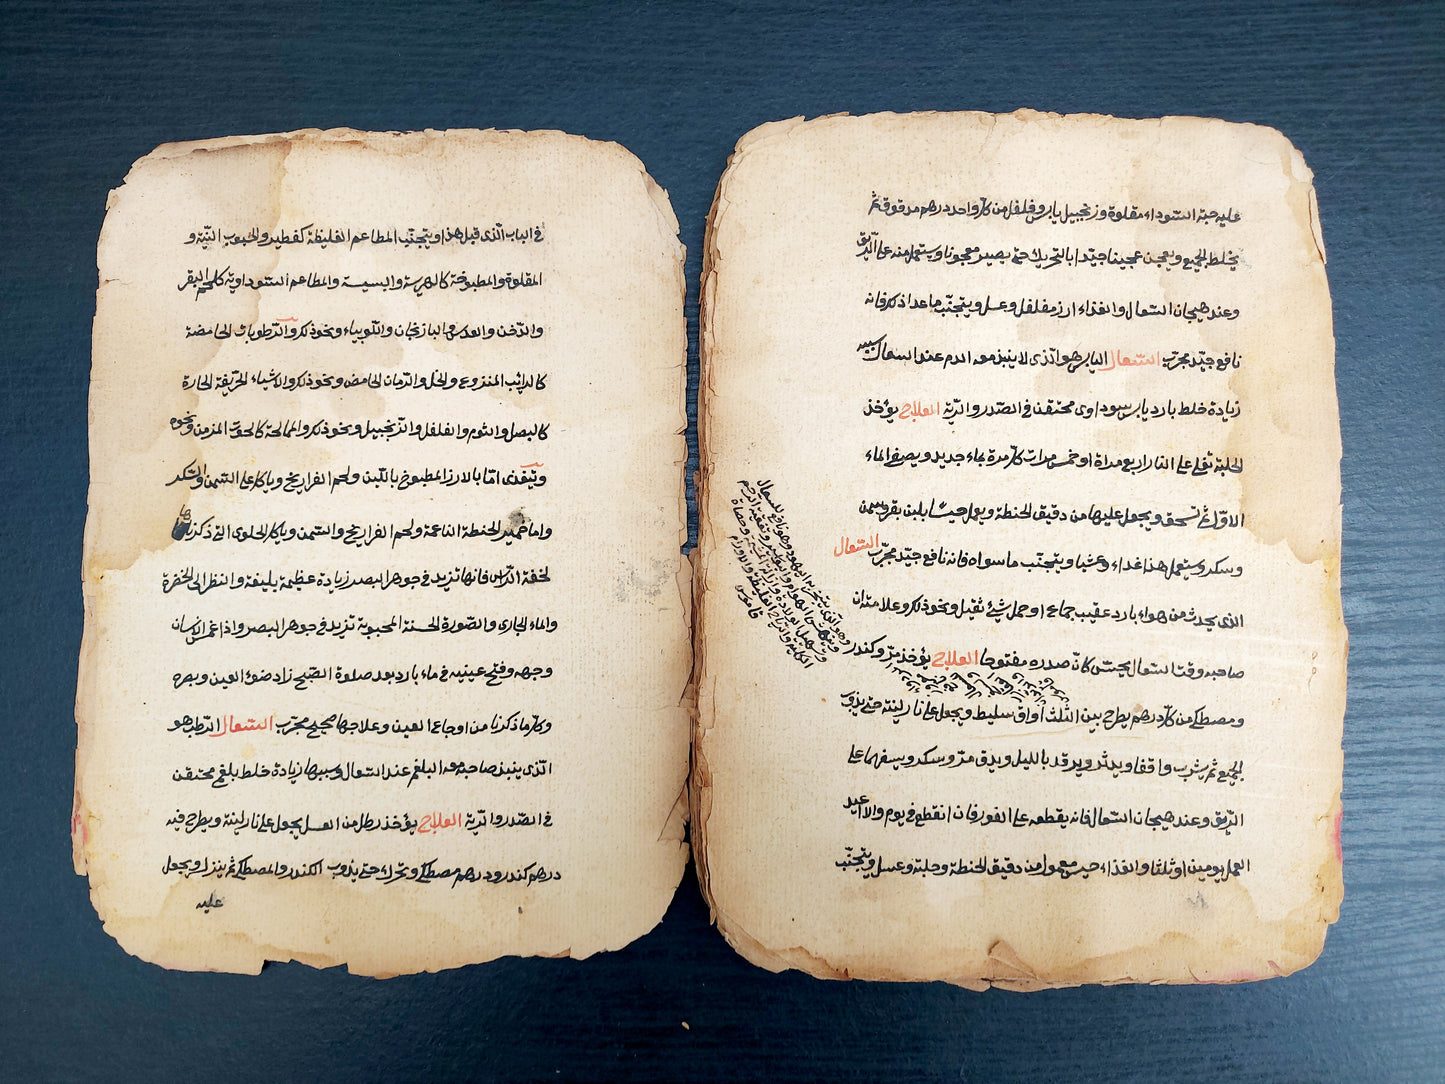 في الباب الذى قبل هذا ويتجنّب المطاعم الغليظة كفطير والحبوب النّيّة و
المقلوة والمطبوخة كالهريسة والبسيسة والمطاعم السّوداويّة كلحم البقر
والدّخن والعدس والباذنجان واللّوبياء ونحو ذلك والرّطوبات الحامضة
كالرايب المنزوع والخلّ والرّمان الحامض ونحو ذلك والاشياء الحرّيفة الحارة
كالبصل والثوم والفلفل والزنجبيل ونحو ذلك والمالحة كالحقبّ المزمن ونحوه
ويتغذى امّا بالارز المطبوخ باللّبن ولحم الفراريخ وياكل على السّمن والسّكر
واما خمير الحنطة الناعمة ولحم الفراريخ والسّمن وياكل الحلوى التى ذكرناها
لخفة الرّاس فانها تزيد في جوهر البصر زيادة عظيمة بليغة والنظر الى الخضرة
والماء الجارى والصّورة الحسنة المحبوبة تزيد في جوهر البصر واذا غمس الانسان
وجهه وفتح عينيه في ماء بارد بعد صلوة الصّبح زاد ضوء العين وبصره
وكلّ ما ذكرنا من اوجاع العين وعلاجها صحيح مجرّب السّعال الرّطب هو
الذى ينبذ صاحبه معه البلغم عند السّعال وسببها زيادة خلط بلغم محتقن
في الصّدر والرّية العلاج يؤخذ رطل من العسل يجعل على نار لينة ويطرح فيه
درهم كندر ودرهم مصطكى وتحراء حتى يذوب الكندر والمصطكى ثمّ ينزل ويجعل
عليه
عليه حبة السّوداء مقلوة وزنجبيل يابس وفلفل من كلّ واحد درهم مدقوق ثمّ
يخلط الجميع ويعجن عجينا جيّدا بالتحريك حتى يصير معجونا ويستعمل منه على الرّيق
وعند هيجان السّعال والغذاء ارز مفلفل وعسل ويتجنّب ما عدا ذكر فانه
نافع جيّد مجرّب السّعال اليابس هو الّذى لا ينبذ معه الدم عند السعال سببه
زيادة خلط بارد يابس سوداوى محتقن في الصّدر والرّية العلاج يؤخذ
الحلبة تغلى على النار اربع مراة او خمس مرات كلّ مرة بماء جديد ويصفى الماء
الاوّل ثمّ تسحق ويجعل عليها من دقيق الحنطة ويعمل حيسًا بلبن بقر وسمن
وسكر ويستعمل هذا غداء وعشيا ويتجنّب ما سواه فانه نافع جيّد مجرّب السّعال
الذى يحدث من هواء بارد عقيب جماع او حمل شئ ثقيل ونحو ذلك وعلامته ان
صاحبه وقت السّعال يحسّ كانّ صدره مفتوحا العلاج يؤخذ مرّ وكندر
ومصطكى من كلّ درهم يطرح بين الثلث أواق سليط ويجعل على نار لينة حتى يذوب
الجميع ثم يشرب واقفا ويدثّر ويرقد بالليل ويدق مرّ وسكر ويسفهما على
الرّيق وعند هيجان السّعال فانه يقطعه على الفور فان انقطع في يوم والا اعيد
العمل يومين او ثلثا والغذاء حيس معمول من دقيق الحنطة وحلبة وعسل ويتجنّب